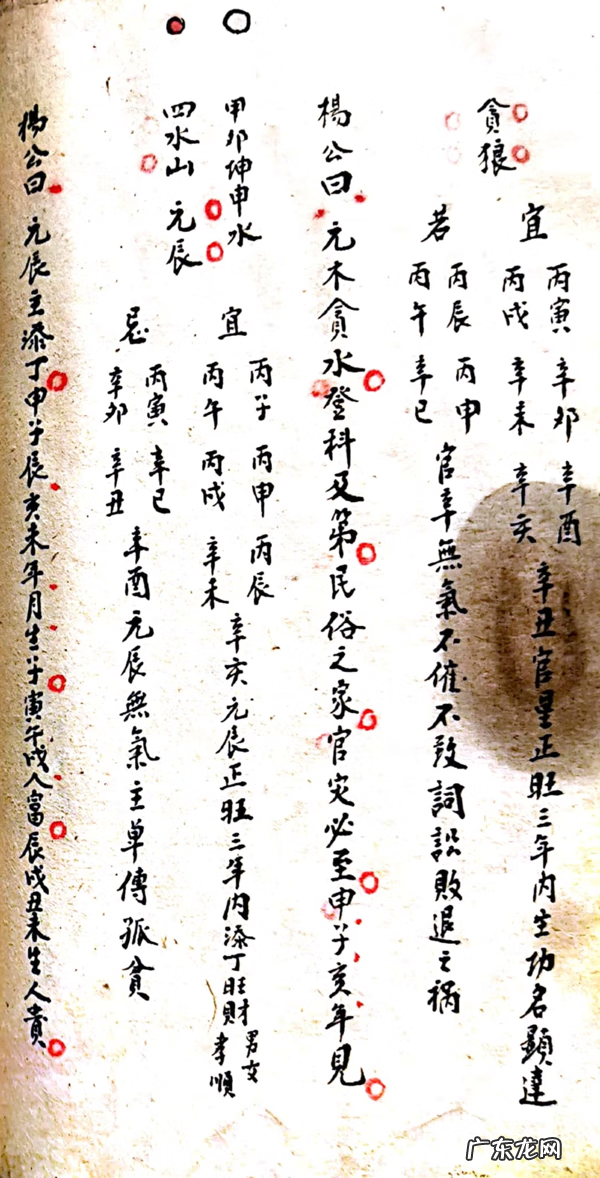 貪狼
宜 丙寅 辛卯 辛酉
丙戌 辛未 辛亥 辛丑官星正旺三年内生功名顯達
若 丙辰 丙申
丙午 辛巳 官辛無氣不催不致詞訟敗退之禍
楊公曰 元木貪水登科及第民俗之家官灾必至申子亥年見
甲卯坤申水
四水山 元辰
宜 丙子 丙申 丙辰
丙午 丙戌 辛未 辛亥元辰正旺三年内添丁旺財 男女
孝順
忌 丙寅 辛巳
辛卯 辛丑 辛酉元辰無氣主单傳孤貧
楊公曰 元辰主添丁申子辰亥未年月生子寅午戌人富辰戌丑未生人貴
广东龙网